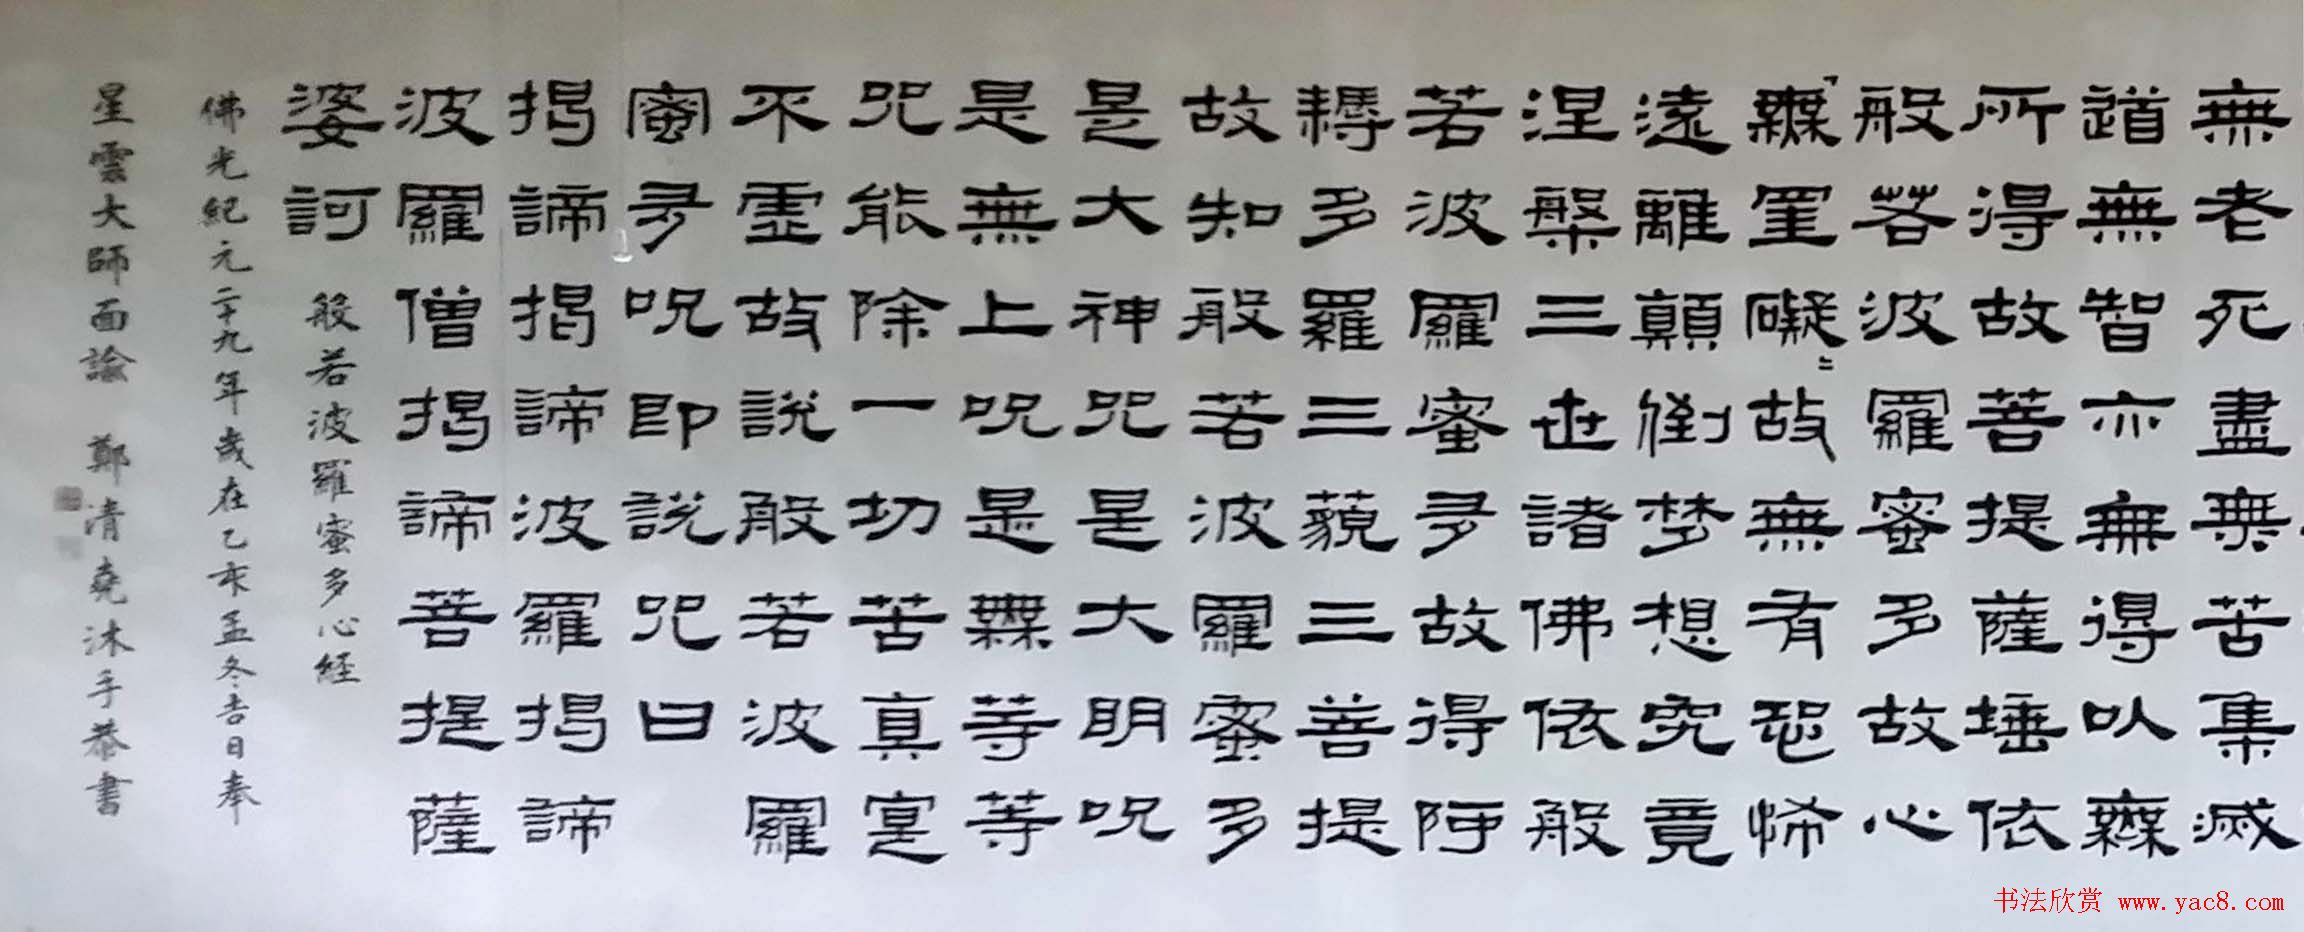 無老死盡無苦集滅
道無智亦無得以無
所得故菩提薩埵依
般若波羅蜜多故心
無罣礙〻故無有恐怖
遠離顛倒梦想究竟
涅槃三世諸佛依般
若波羅蜜多故得阿
耨多羅三藐三菩提
故知般若波羅蜜多
是大神咒是大明呪
是無上呪是無等等
咒能除一切苦真寔
不虛故說般若波羅
蜜多呪即說咒曰
揭諦揭諦波羅揭諦
波羅僧揭諦菩提薩
婆訶
般若波羅蜜多心経
佛光紀元二十九年歲在乙未孟冬吉日奉
星雲大師面諭 鄭清堯沐手恭書
书法欣赏 www.yac8.com